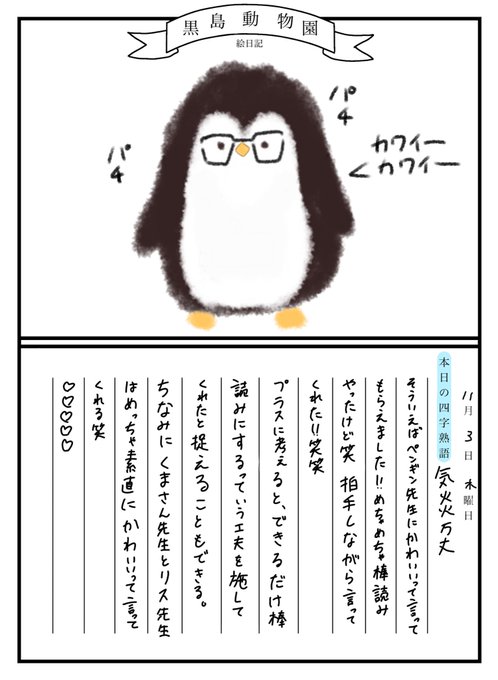 黒島動物園
絵日記
パチ
パチ
カワイー
カワイー
11月3日木曜日
本日の四字熟語 気炎万丈
そういえばペンギン先生にかわいいって言って
もらえました!!めちゃめちゃ棒読み
やったけど笑 拍手しながら言って
くれた!!笑笑
プラスに考えると、できるだけ棒
読みにするっていう工夫を施して
くれたと捉えることもできる。
ちなみにくまさん先生とリス先生
はめっちゃ素直にかわいいって言って
くれる笑
♡♡♡♡♡